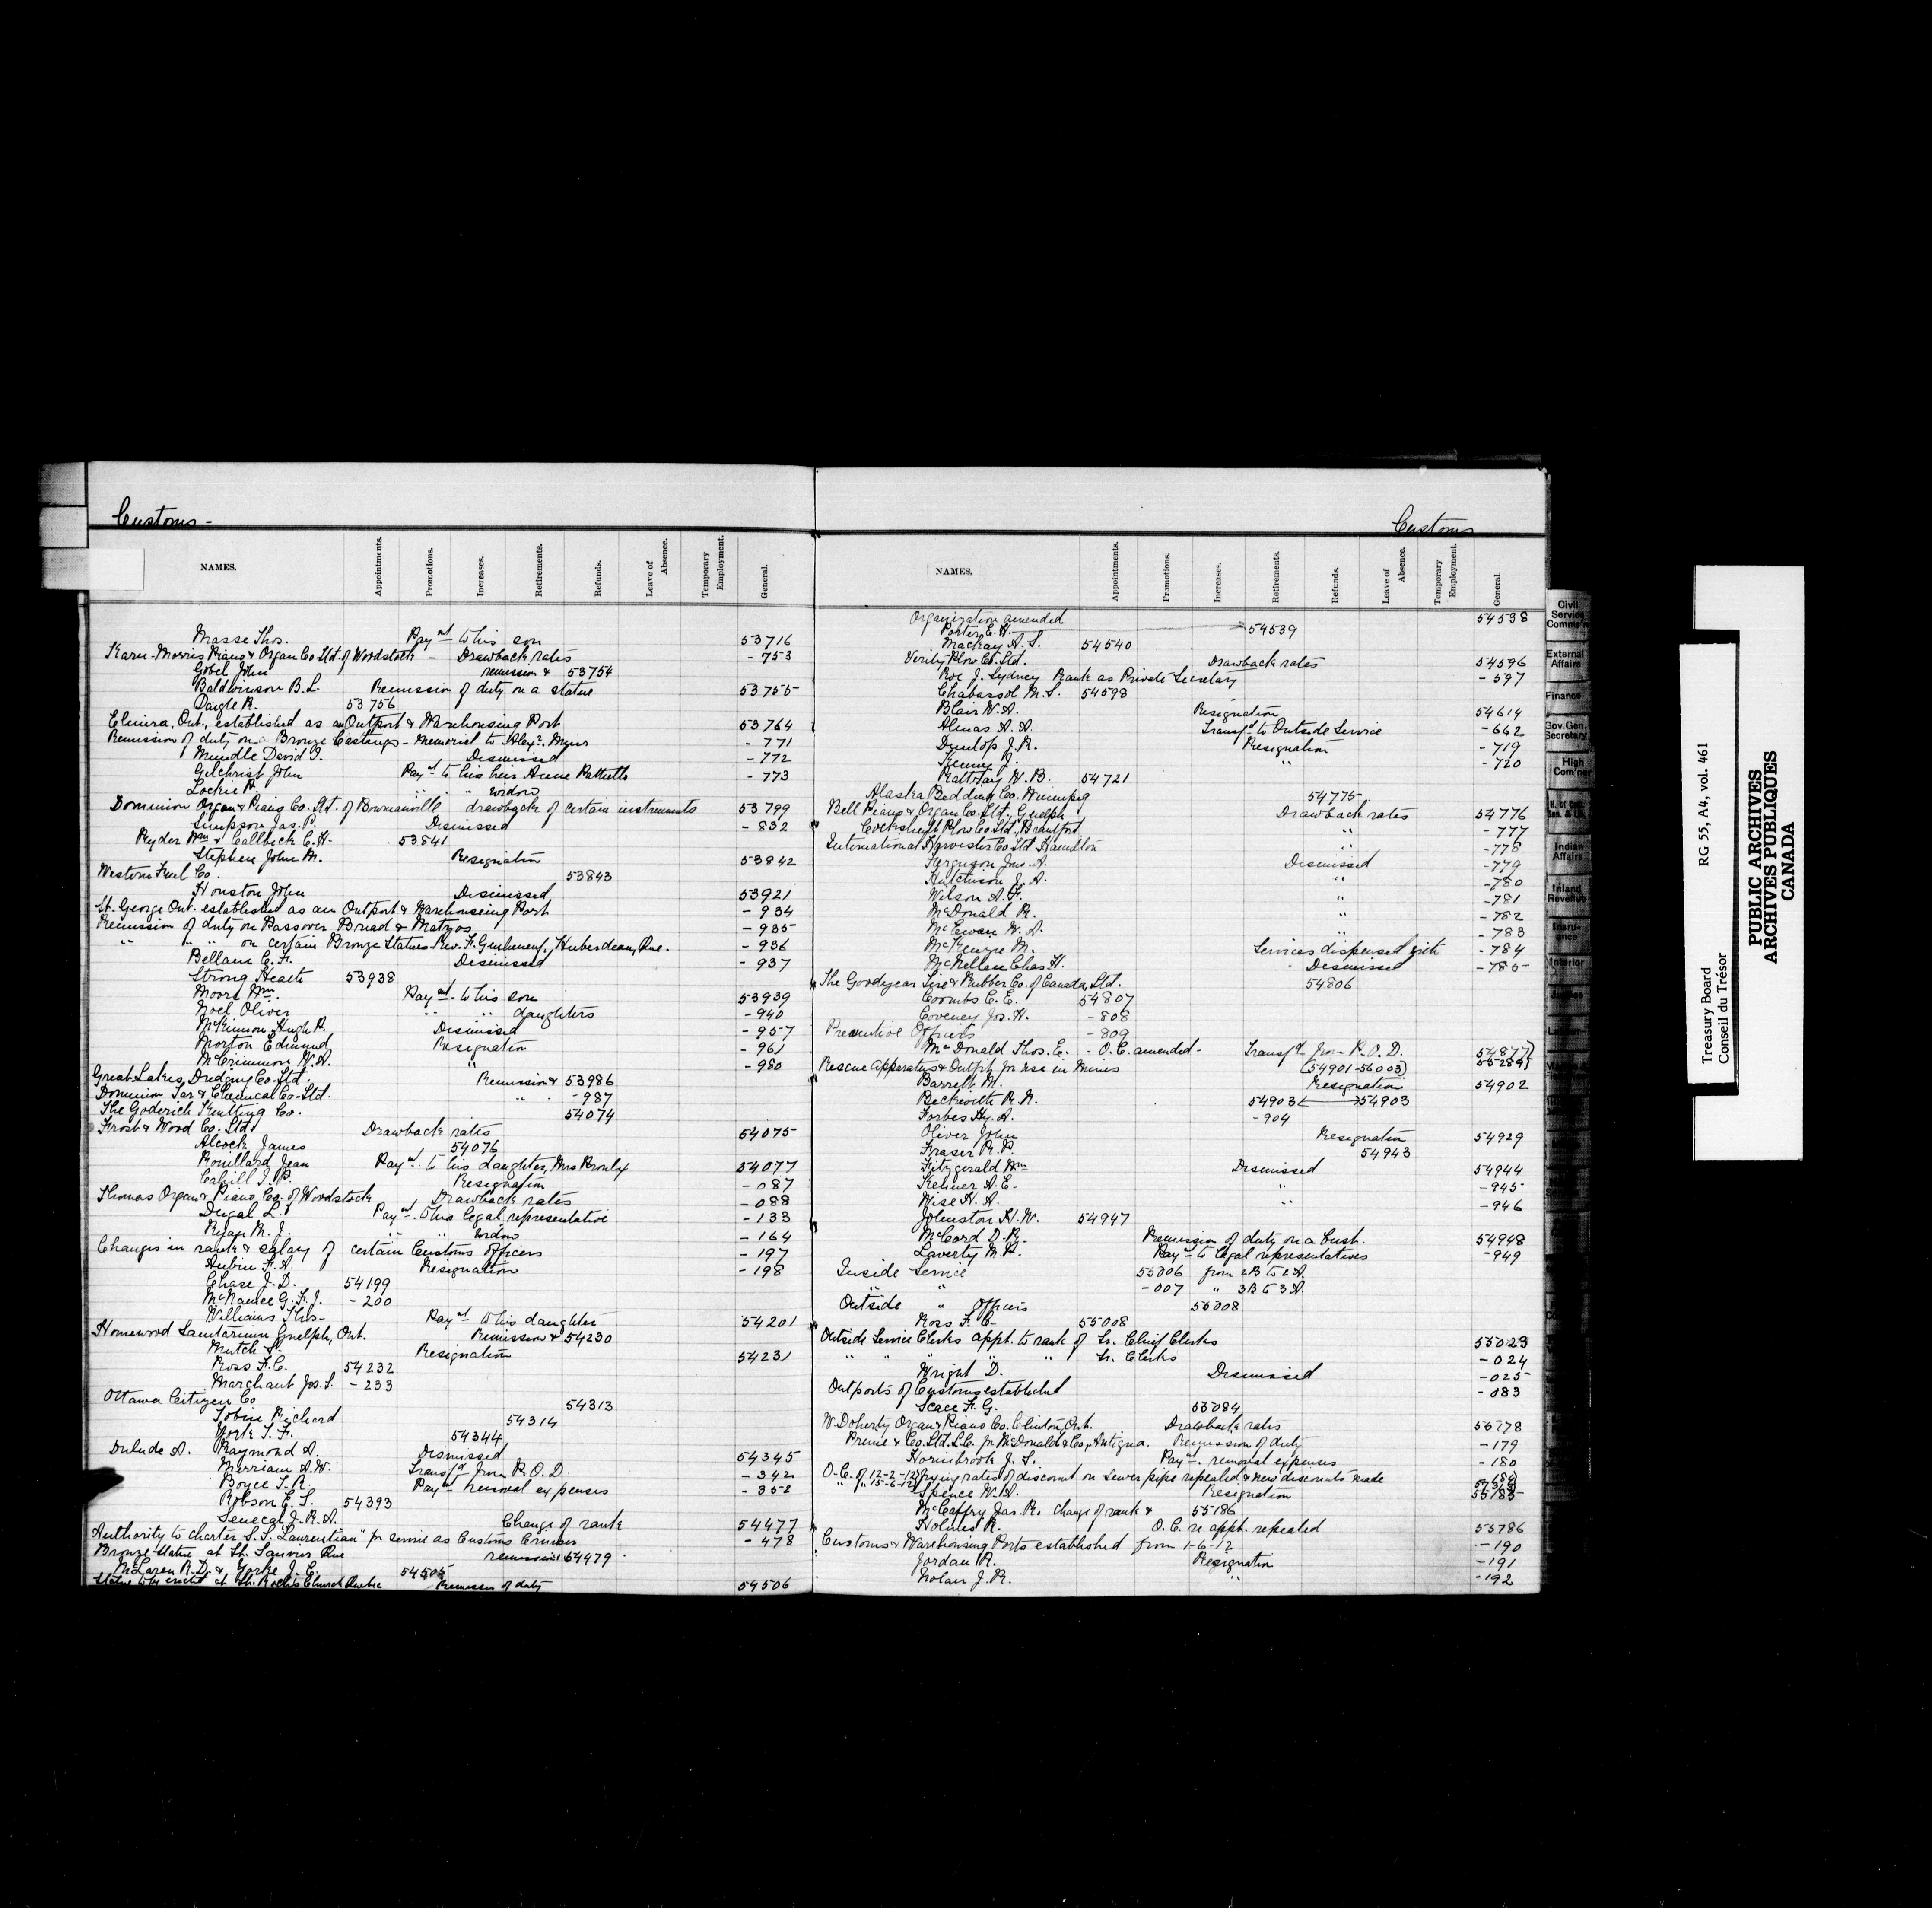 Customs -
NAMES. Appointments. Promotions. Increases. Retirements. Refunds. Leave of Absence. Temporary Employment. General.
Masse Thos. Paymt to his son 53716
Karn-Morris Piano & Organ Co Ltd of Woodstock - Drawback rates - 753
Gobel John remission & 53754
Baldwinson B. L. Remission of duty on a statue 53755
Daigle R. 53756
Elmira, Ont., established as an Outport & Warehousing Port 53764
Remission of duty on Bronze Castings - Memorial to Alexr. Muir - 771
Mundle David I. Dismissed - 772
Gilchrist John Paymt to his heir Annie - 773
Lockie R. " " widow
Dominion Organ & Piano Co. Ltd. of Bowmanville drawback of certain instruments 53799
Simpson Jas. P. Dismissed - 832
Ryder Wm & Callbeck E. H. 53841
Stephen John M. Resignation 53842
Western Fuel Co. 53843
Houston John Dismissed 53921
St. George Ont. established as an Outport & Warehousing Port - 934
Remission of duty on Passover Bread & Matzos - 935
" " " on certain Bronze Statues Rev. F. Huberdeau, Que. - 936
Bellam C. F. Dismissed - 937
Strong Heath 53938
Moore Wm. Paymt. to his son 53939
Noel Oliver " " daughters - 940
McKinnon Hugh P. Dismissed - 957
Morton Edmund Resignation - 961
McCrimmon W. A. " - 980
Great Lakes Dredging Co. Ltd. Remission & 53986
Dominion Tar & Chemical Co. Ltd. " - 987
The Goderich Knitting Co. 54074
Frost & Wood Co. Ltd. Drawback rates 54075
Alcock James 54076
Rouillard Jean Paymt. to his daughter, Mrs Proulx 54077
Cahill J. P. Resignation - 087
Thomas Organ & Piano Co. of Woodstock Drawback rates - 088
Dugal L. Paymt. to his legal representative - 133
Ryan M. J. " " widow - 164
Changes in rank & salary of certain Customs officers - 197
Aubin F. A. Resignation - 198
Chase J. D. 54199
McNamee G. F. J. - 200
Williams Thos. Paymt to his daughter 54201
Homewood Sanitarium Guelph, Ont. Remission & 54230
Mutch S. Resignation 54231
Ross F. C. 54232
Marchant Jos. S. - 233
Ottawa Citizen Co 54313
Tobin Richard 54314
York T. F. 54344
Dulude A. Raymond A. Dismissed 54345
Merriam A. W. Transfd from P. O. D. - 342
Boyce T. R. Paymt removal expenses - 352
Robson E. S. 54393
Senecal J. R. A. Change of rank 54477
Authority to charter S. S. "Laurentian" for service as Customs Cruiser - 478
Bronze statue at St. Que remission 54479
McLaren R. D. & Yorke J. E. 54505
Statue to be erected at St. Rochs Church Quebec Remission of duty 54506
Customs
NAMES. Appointments. Promotions. Increases. Retirements. Refunds. Leave of Absence. Temporary Employment. General.
Organization amended 54538
Porter E. H. 54539
Mackay A. S. 54540
Verity Plow Co. Ltd. Drawback rates 54596
Roe J. Sydney Rank as Private Secretary - 597
Chabassol M. S. 54598
Blair W. A. Resignation 54614
Almas A. A. Transfd to Outside Service - 662
Dunlop J. R. Resignation - 719
Kenny J. " - 720
Rattray W. B. 54721
Alaska Bedding Co. Winnipeg 54775
Bell Piano & Organ Co. Ltd., Guelph Drawback rates 54776
Cockshutt Plow Co Ltd., Brantford " - 777
International Harvester Co Ltd Hamilton " - 778
Ferguson Jno. A. Dismissed - 779
Hutchison J. A. " - 780
Wilson A. F. " - 781
McDonald R. " - 782
McEwan W. A. " - 783
McKenzie M. Services dispensed with - 784
McKellar Chas H. Dismissed - 785
The Goodyear Tire & Rubber Co. of Canada, Ltd. 54806
Coombs C. E. 54807
Coveney Jos. H. - 808
Preventive Officers - 809
McDonald Thos. E. - O. C. amended - Transfd from P. O. D. 54877) 55289)
Rescue Apparatus & Outfit for use in Mines (54901-56003)
Barrett M. Resignation 54902
Beckwith R. N. 54903 54903
Forbes Hy. A. - 904
Oliver John Resignation 54929
Fraser R. P. 54943
Fitzgerald Wm Dismissed 54944
Kenner A. E. " - 945
Wise H. A. " - 946
Johnston H. W. 54947
McCord D. R. Remission of duty on a bust. 54948
Laverty M. H. Paymt to legal representatives - 949
Inside Service 55006 from 2B to 2A.
" " - 007 " 3B to 3A.
Outside " Officers 55008
Ross F. C. 55008
Outside Service Clerks appt. to rank of Sr. Chief Clerks 55023
" " " " " Sr. Clerks - 024
Wright D. Dismissed - 025
Outports of Customs established - 083
Scace F. G. 55084
W. Doherty Organ & Piano Co. Clinton, Ont. Drawback rates 55178
Co. Ltd. S.C. for McDonald & Co., Antigua. Remission of duty - 179
Hornibrook J. S. Paymt. removal expenses - 180
O. C. of 12-2-12 fixing rates of discount on sewer pipe repealed & new discounts made
" " 15-6-12 Spence W. A. Resignation 55185
McCaffry Jas. R. Change of rank & 55186
Holmes R. O. C. re appt. repealed 55786
Customs & Warehousing Ports established from 1-6-12 - 190
Jordan R. Resignation - 191
Nolan J. R. " - 192
Civil Service Comm'n
External Affairs
Finance
Gov. Gen. Secretary
High Com'ner
Indian Affairs
Inland Revenue
Insurance
Interior
Treasury Board RG 55, A4, vol. 461
Conseil du Trésor
PUBLIC ARCHIVES
ARCHIVES PUBLIQUES
CANADA